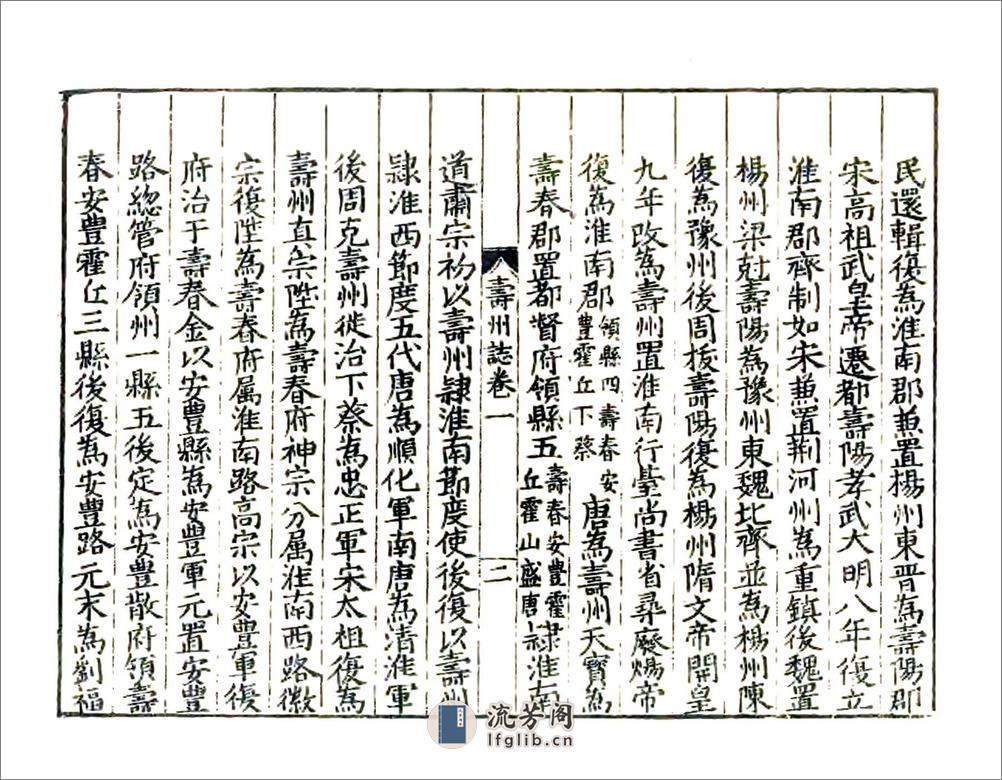 民還輯復為淮南郡兼置揚州東晋為壽陽郡
宋高祖武皇帝遷都壽陽孝武大明八年復立
淮南郡齊制如宋兼置荆河州為重鎮後魏置
楊州梁尅壽陽為豫州東魏北齊並為楊州陳
復為豫州後周拔壽陽復為楊州隋文帝開皇
九年改為壽州置淮南行臺尚書省尋廢煬帝
復為淮南郡領縣四壽春安豊霍丘下蔡唐為壽州天寳為
壽春郡置都督府領縣五壽春安豊霍丘霍山盛唐隷淮南
壽州誌卷一
二
道肅宗初以壽州隷淮南節度使後復以壽州
隷淮西節度五代唐為順化軍南唐為清淮軍
後周克壽州徙治下蔡為忠正軍宋太祖復為
壽州真宗陞為壽春府神宗分属淮南西路徽
宗復陞為壽春府属淮南路高宗以安豊軍復
府治于壽春金以安豊縣為安豊軍元置安豊
路總管府領州一縣五後定為安豊散府領壽
春安豊霍丘三縣後復為安豊路元末為劉福
流芳阁
lfglib.cn